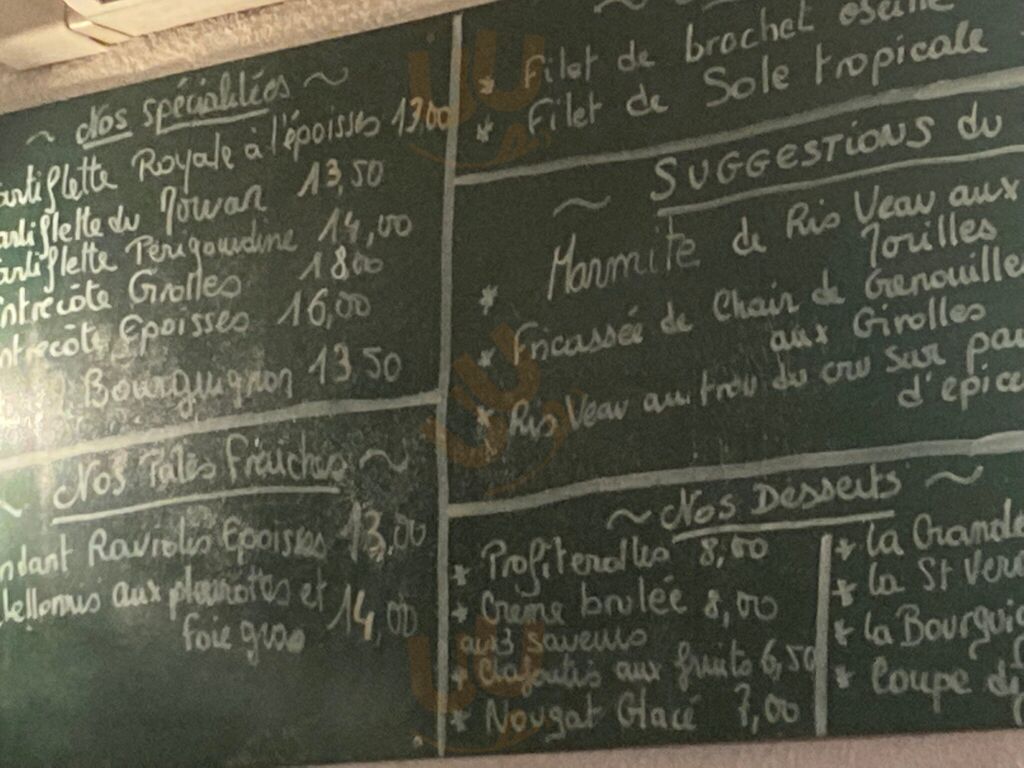 ~ Nos spécialités ~
artiflette Royale à l'époisses 13,00
artiflette du Morvan 13,50
artiflette Périgourdine 14,00
ntrecôte Grolles 18,00
ntrecôte Epoisses 16,00
Bourguignon 13,50
~ Nos Pates Fraiches ~
ndant Ravioles Epoisses 13,00
aux pleurottes et 14,00
foie gras
* Filet de brochet oseille
* Filet de Sole tropicale
~ SUGGESTIONS du
* Marmite de Ris Veau aux
* Fricassée de Chair de Grenouille
aux Girolles
* Ris Veau au trou du cru sur pai
d'epice
~ Nos Desserts ~
* Profiterolles 8,00
* Creme brulée 8,00
aux 3 saveurs
* Clafoutis aux fruits 6,50
* Nougat Glacé 7,00
* la Grande
* la St Ver
* la Bourgui
* Coupe di